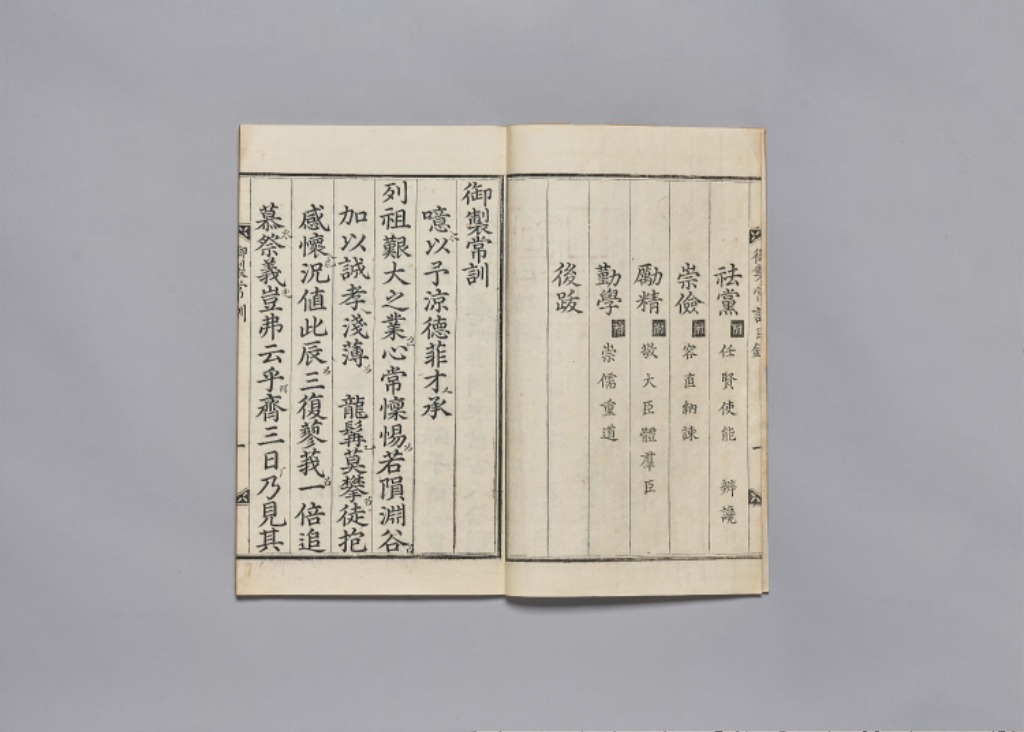 御製常訓目錄
祛黨 附 任賢使能 辨讒
崇儉 附 容直納諫
勵精 附 敬大臣體羣臣
勤學 附 崇儒重道
後跋
御製常訓
噫以予涼德菲才承
列祖艱大之業心常懍惕若隕淵谷
加以誠孝淺薄 龍髯莫攀徒抱
感懷況値此辰三復蓼莪一倍追
慕祭義豈弗云乎齊三日乃見其
御製常訓 一